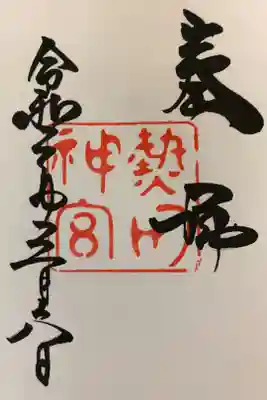 奉拝
熱田
神宮
令和二年三月八日